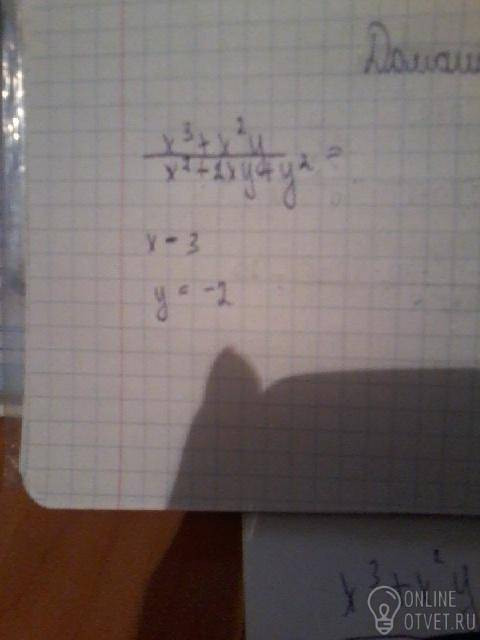 Домаш
x³ + x²y
x² + 2xy + y² =
x = 3
y = -2
x³ + x² y
ONLINE
OTVET.RU